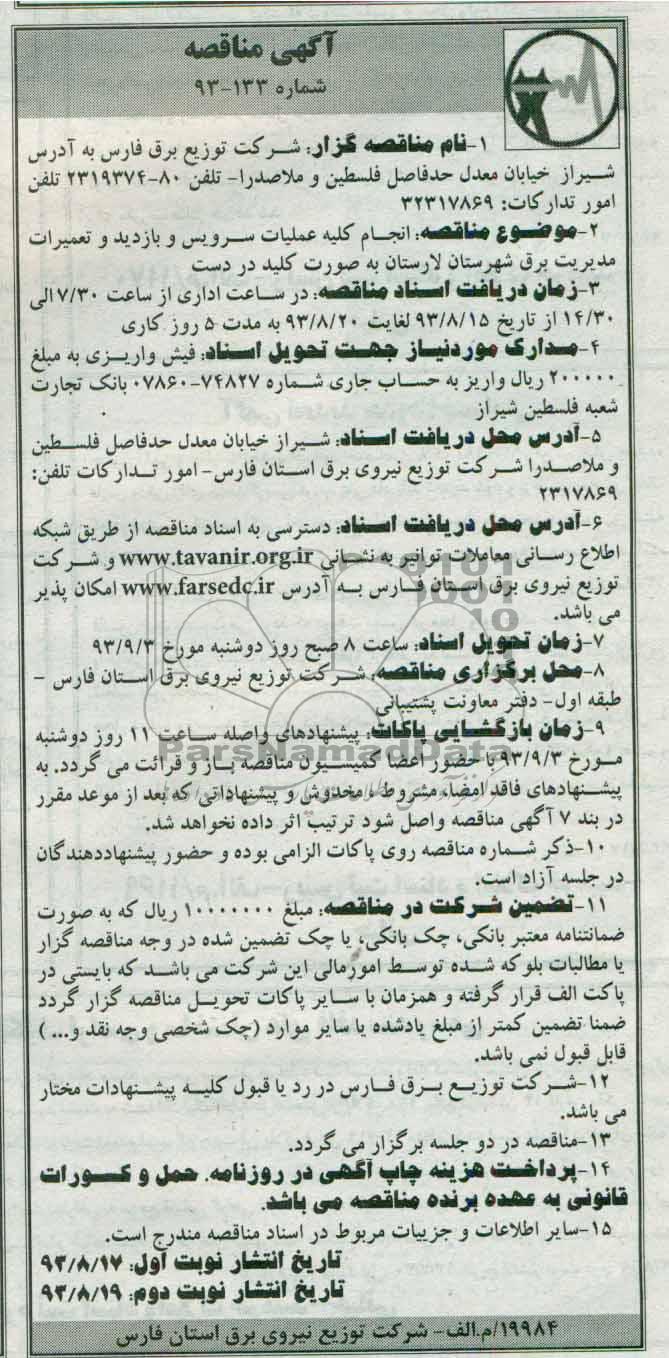 آگهی مناقصه
شماره ۱۳۳-۹۳
۱-نام مناقصه گزار: شرکت توزیع برق فارس به آدرس
شیراز خیابان معدل حدفاصل فلسطین و ملاصدرا- تلفن ۸۰-۲۳۱۹۳۷۴ تلفن
امور تدارکات: ۳۲۳۱۷۸۶۹
۲-موضوع مناقصه: انجام کلیه عملیات سرویس و بازدید و تعمیرات
مدیریت برق شهرستان لارستان به صورت کلید در دست
۳-زمان دریافت اسناد مناقصه: در ساعت اداری از ساعت ۷/۳۰ الی
۱۴/۳۰ از تاریخ ۹۳/۸/۱۵ لغایت ۹۳/۸/۲۰ به مدت ۵ روز کاری
۴-مدارک موردنیاز جهت تحویل اسناد: فیش واریزی به مبلغ
۲۰۰۰۰۰ ریال واریز به حساب جاری شماره ۷۴۸۲۷-۰۷۸۶۰ بانک تجارت
شعبه فلسطین شیراز
۵-آدرس محل دریافت اسناد: شیراز خیابان معدل حدفاصل فلسطین
و ملاصدرا شرکت توزیع نیروی برق استان فارس- امور تدارکات تلفن:
۲۳۱۷۸۶۹
۶-آدرس محل دریافت اسناد: دسترسی به اسناد مناقصه از طریق شبکه
اطلاع رسانی معاملات توانیر به نشانی www.tavanir.org.ir و شرکت
توزیع نیروی برق استان فارس به آدرس www.farsedc.ir امکان پذیر
می باشد.
۷-زمان تحویل اسناد: ساعت ۸ صبح روز دوشنبه مورخ ۹۳/۹/۳
۸-محل برگزاری مناقصه: شرکت توزیع نیروی برق استان فارس -
طبقه اول- دفتر معاونت پشتیبانی
۹-زمان بازگشایی پاکات: پیشنهادهای واصله ساعت ۱۱ روز دوشنبه
مورخ ۹۳/۹/۳ با حضور اعضا کمیسیون مناقصه باز و قرائت می گردد. به
پیشنهادهای فاقد امضا، مشروط، مخدوش و پیشنهاداتی که بعد از موعد مقرر
در بند ۷ آگهی مناقصه واصل شود ترتیب اثر داده نخواهد شد.
۱۰-ذکر شماره مناقصه روی پاکات الزامی بوده و حضور پیشنهاددهندگان
در جلسه آزاد است.
۱۱-تضمین شرکت در مناقصه: مبلغ ۱۰۰۰۰۰۰۰ ریال که به صورت
ضمانتنامه معتبر بانکی، چک بانکی، یا چک تضمین شده در وجه مناقصه گزار
یا مطالبات بلوکه شده توسط امورمالی این شرکت می باشد که بایستی در
پاکت الف قرار گرفته و همزمان با سایر پاکات تحویل مناقصه گزار گردد
ضمنا تضمین کمتر از مبلغ یادشده یا سایر موارد (چک شخصی وجه نقد و... )
قابل قبول نمی باشد.
۱۲-شرکت توزیع برق فارس در رد یا قبول کلیه پیشنهادات مختار
می باشد.
۱۳-مناقصه در دو جلسه برگزار می گردد.
۱۴-پرداخت هزینه چاپ آگهی در روزنامه. حمل و کسورات
قانونی به عهده برنده مناقصه می باشد.
۱۵-سایر اطلاعات و جزییات مربوط در اسناد مناقصه مندرج است.
تاریخ انتشار نوبت اول: ۹۳/۸/۱۷
تاریخ انتشار نوبت دوم: ۹۳/۸/۱۹
۱۹۹۸۴/م.الف- شرکت توزیع نیروی برق استان فارس
ParsNamadData